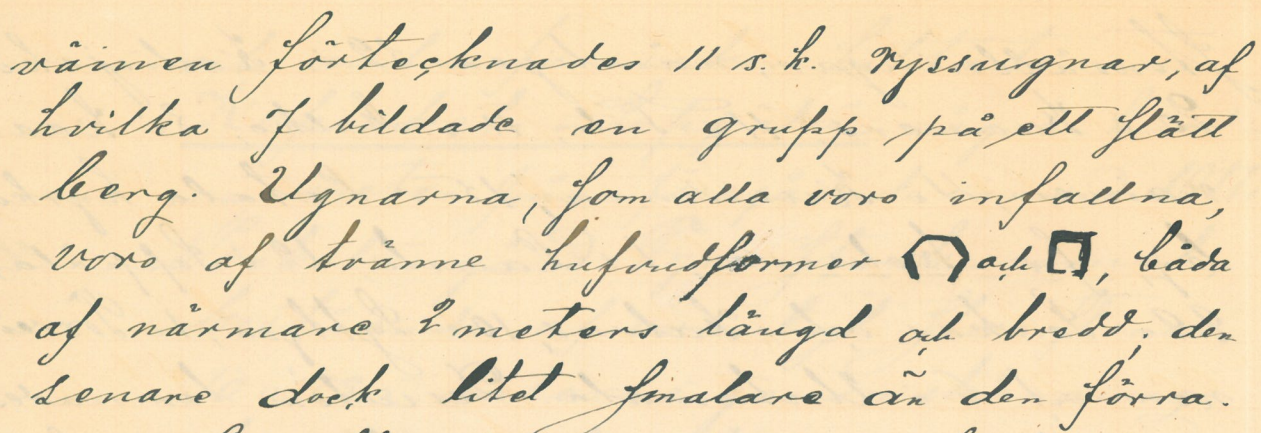 väinen förtecknades 11 s.k. ryssugnar, af
hvilka 7 bildade en grupp på ett slätt
berg. Ugnarna, som alla voro infallna,
voro af tvänne hufvudformer och , båda
af närmare 2 meters längd och bredd; den
senare dock litet smalare än den förra.